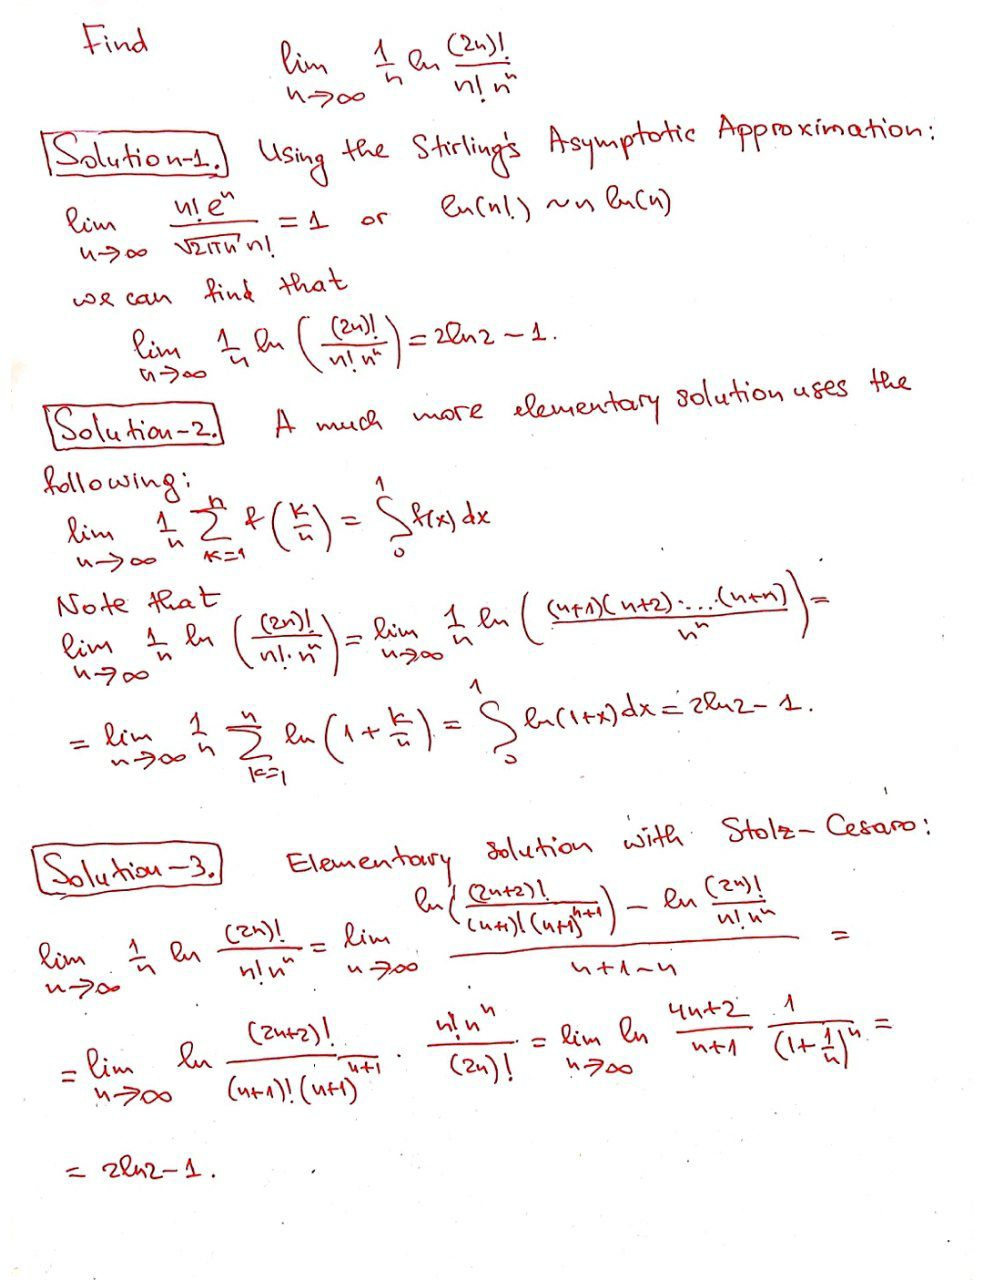 Find
lim n→∞ 1/n ln (2n)!/(n! n^n)
Solution-1. Using the Stirling's Asymptotic Approximation:
lim n→∞ n! e^n/(√(2πn) n!) = 1 or ln(n!) ~ n ln(n)
we can find that
lim n→∞ 1/n ln ((2n)!/(n! n^n)) = 2ln2 - 1.
Solution-2. A much more elementary solution uses the
following:
lim n→∞ 1/n ∑_{k=1}^{n} f(k/n) = ∫_0^1 f(x) dx
Note that
lim n→∞ 1/n ln ((2n)!/(n!·n^n)) = lim n→∞ 1/n ln ((n+1)(n+2)·...·(n+n)/n^n) =
= lim n→∞ 1/n ∑_{k=1}^{n} ln(1 + k/n) = ∫_0^1 ln(1+x) dx = 2ln2 - 1.
Solution-3. Elementary solution with Stolz-Cesaro:
lim n→∞ 1/n ln (2n)!/(n! n^n) = lim n→∞ (ln((2n+2)!/((n+1)! (n+1)^{n+1})) - ln (2n)!/(n! n^n))/(n+1-n) =
= lim n→∞ ln (2n+2)!/((n+1)! (n+1)^{n+1}) · n! n^n/(2n)! = lim n→∞ ln (4n+2)/(n+1) 1/(1+1/n)^n =
= 2ln2 - 1.